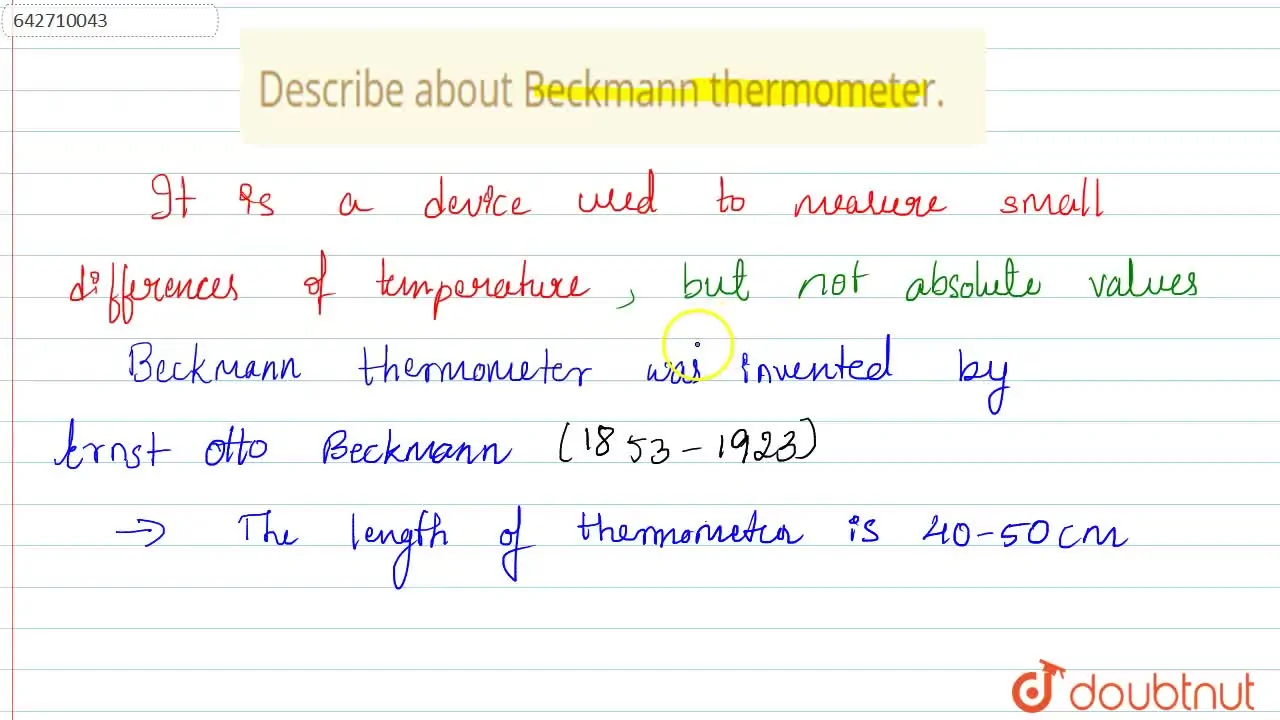 642710043
Describe about Beckmann thermometer.
It is a device used to measure small
differences of temperature, but not absolute values
Beckmann thermometer was invented by
Ernst Otto Beckmann (1853-1923)
→ The length of thermometer is 40-50cm
doubtnut